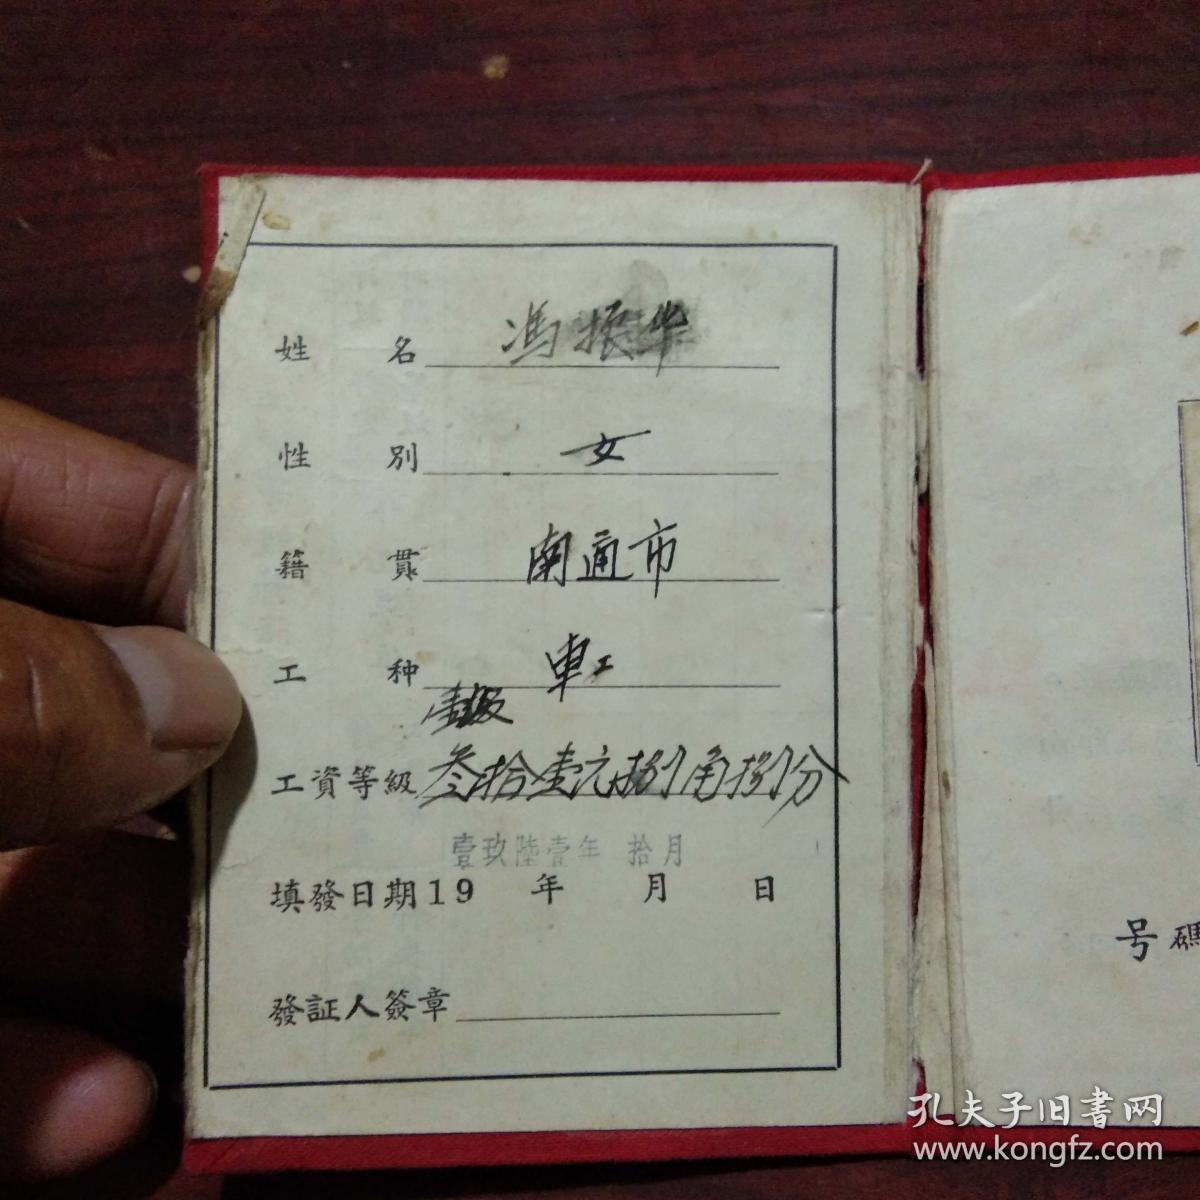 姓名 馮振华
性別 女
籍貫 南通市
工种 車工
壹級
工資等級 叁拾壹元捌角捌分
壹玖陸壹年 拾月
填發日期19 年 月 日
發証人簽章
号碼
孔夫子旧書网
www.kongfz.com